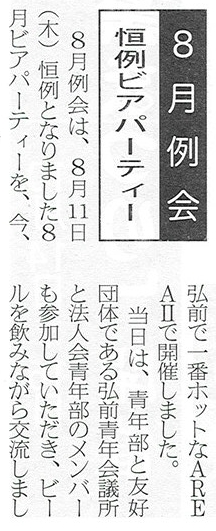 8月例会
恒例ビアパーティー
8月例会は、8月11日
(木)恒例となりました8
月ビアパーティーを、今、
弘前で一番ホットなARE
AⅡで開催しました。
当日は、青年部と友好
団体である弘前青年会議所
と法人会青年部のメンバー
も参加していただき、ビー
ルを飲みながら交流しまし